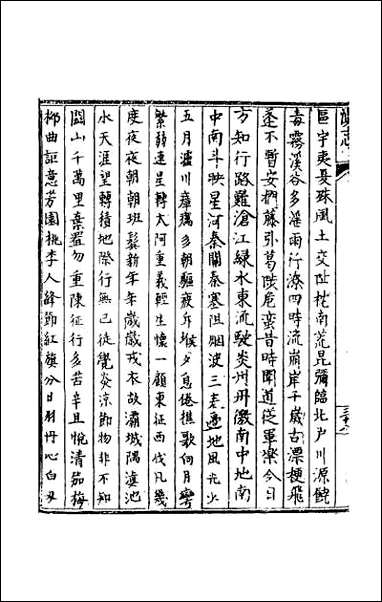 區宇夷夏殊風土交阯枕南荒昆彌臨北戶川源饒
毒霧溪谷多滛雨行潦四時流崩岸千歲古漂梗飛
蓬不暫安捫藤引葛陟危蠻昔時聞道從軍樂今日
方知行路難滄江綠水東流駛炎州丹徼南中地南
中南斗映星河秦關秦塞阻烟波三春邊地風光少
五月瀘川瘴癘多朝驅疲斥堠夕息倦樵歌向月彎
繁弱連星轉大阿重義輕生懷一顧東征西伐凡幾
度夜夜朝朝班鬢新年年歲歲戎衣故灞城隅滇池
水天涯望轉積地際行無已徒覺炎涼節物非不知
關山千萬里棄置勿重陳征行多苦辛且悅清茄梅
柳曲詎意芳園桃李人絳節紅旗分日羽丹心白刃